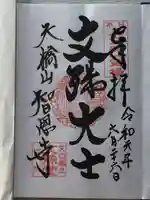 奉拝
令和元年
六月二十六日
文殊大士
天橋山智恩寺